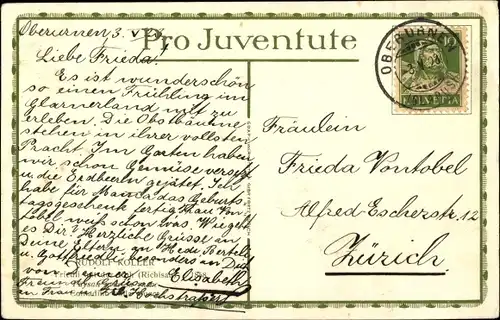 Oberurnen 3. V.
Pro Juventute
Liebe Frieda!
Es ist wunderschön
so einen Frühling im
Glarnerland mit zu
erleben. Die Obstbäume
stehen in ihrer vollsten
Pracht. Im Garten haben
wir schon Gemüse versetzt
u. die Erdbeeren gejätet. Ich
habe für Mama das Geburts
tagsgeschenk fertig. Frau Von
tobel weiß schon was. Wie geht
es Dir? Herzliche Grüsse an
Deine Eltern an Hede Berteli
u. Gottfried besonders an Dich
von Deiner Elisabeth
RUDOLF KOLLER
Freundl. Grüsse
an Frau
OBERURNEN
HELVETIA
Fräulein
Frieda Vontobel
Alfred-Escherstr. 12
Zürich.